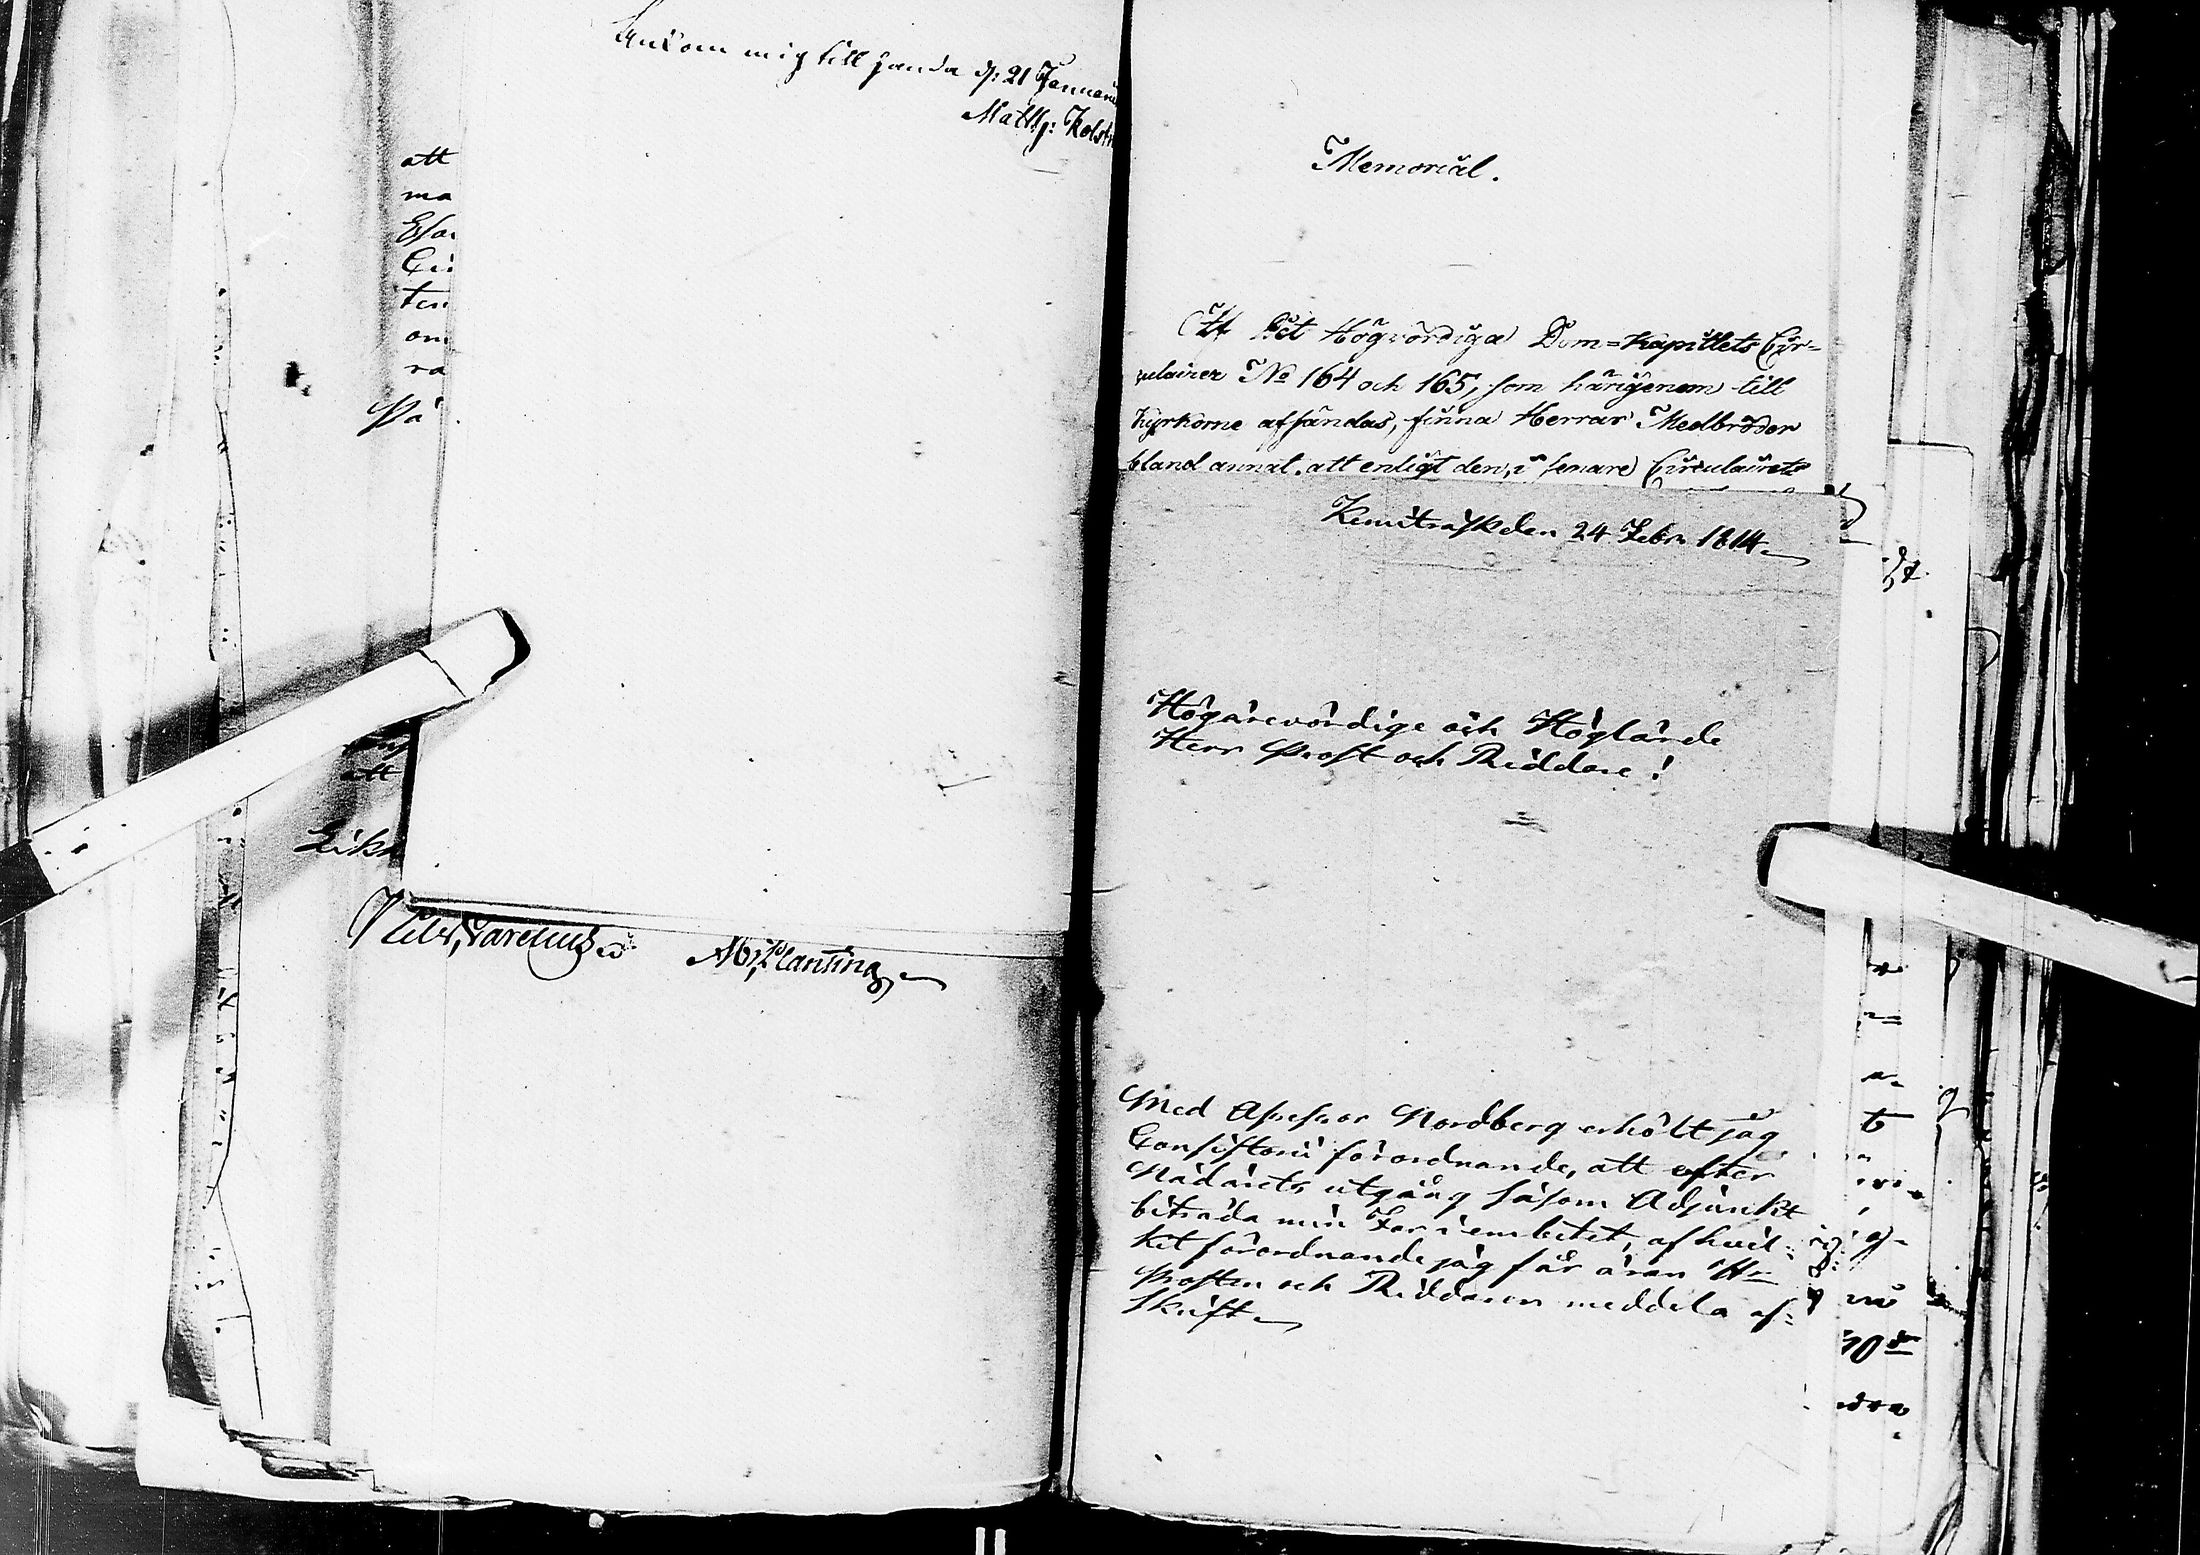 Ankom mig till handa d: 21 Januarii
Matth: Kolst
att
ma
ten
om
ra
på
att
A: G: Planting
Memorial.
Af Det Högvördiga Dom=Kapitlets Cir=
culairer No 164 och 165, som härigenom till
Kyrkorne afsändas, finna Herrar Medbröder
bland annat, att enligt den, i senare Circulairets
Kemiträsk den 24 Febr. 1814
Högärevördige och Höglärde
Herr Prost och Riddare!
Med Assessor Nordberg erhölt jag
Consistorii förordnande, att efter
Nådårets utgång såsom Adjunkt
biträda min Far i embetet, af hvil=
ket förordnande jag får äran Hr
Prosten och Riddaren meddela af=
skrift